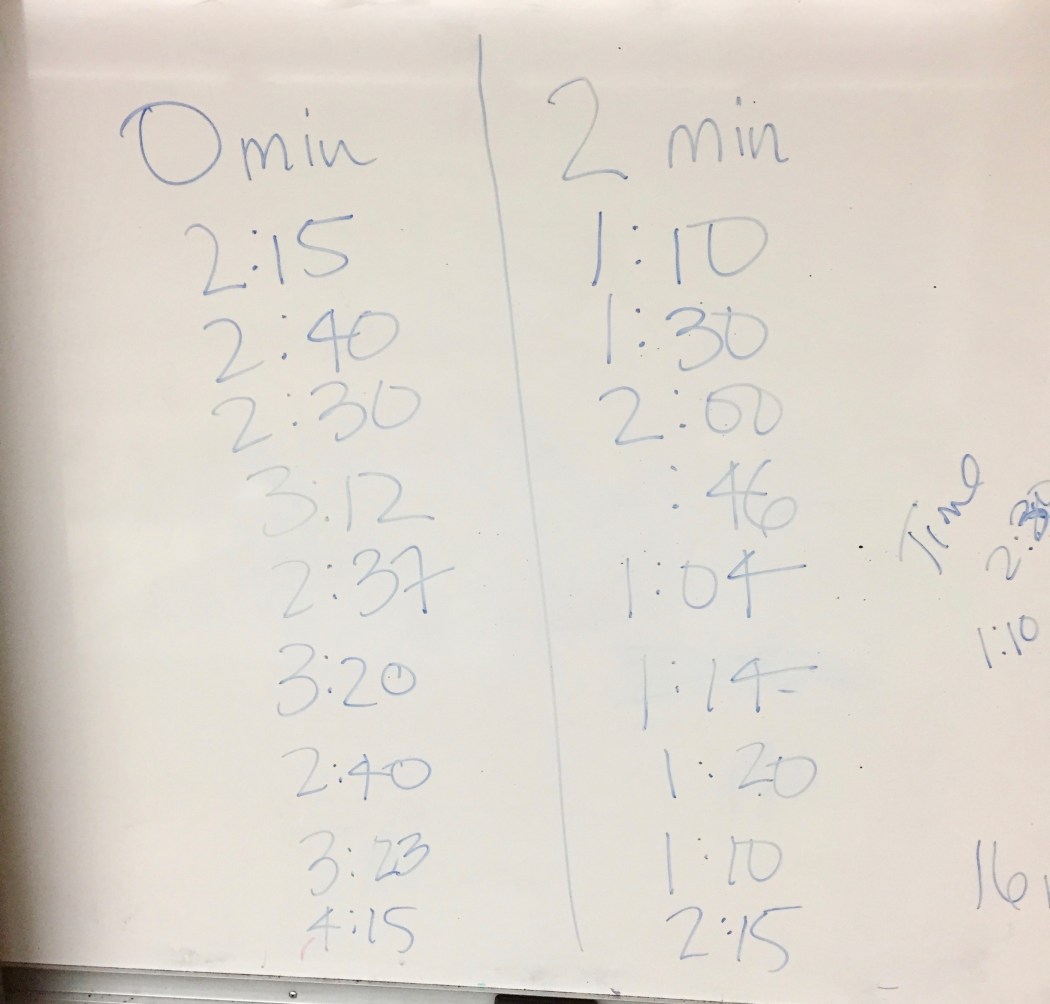 0 min 2 min
2:15 1:10
2:40 1:30
2:30 2:00
3:12 :46
2:37 1:04
3:20 1:14
2:40 1:20
3:23 1:10
4:15 2:15
Time
2:30
1:10
16